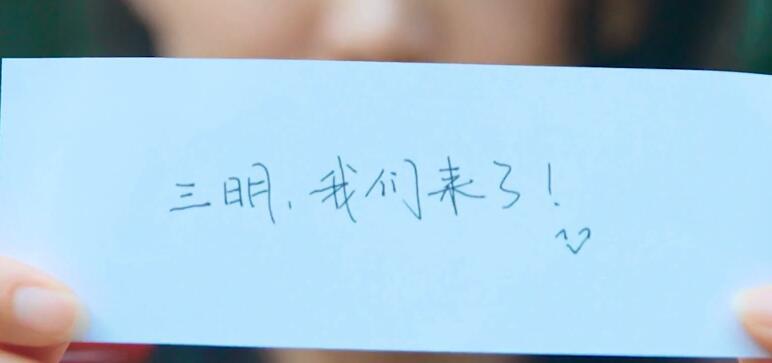 三明,我们来了!